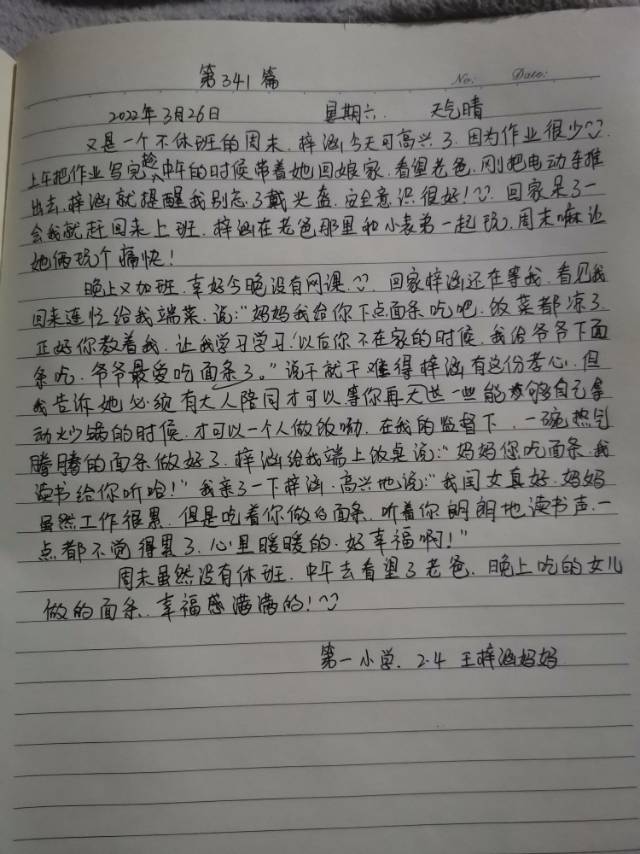 第341篇
No: Date:
2022年3月26日 星期六. 天气晴
又是一个不休班的周末. 梓涵今天可高兴了. 因为作业很少
上午把作业写完趁中午的时候带着她回娘家. 看望老爸. 刚把电动车推
出去. 梓涵就提醒我别忘了戴头盔. 安全意识很好! 回家呆了一
会我就赶回来上班. 梓涵在老爸那里和小表弟一起玩. 周末嘛让
她俩玩个痛快!
晚上又加班. 幸好今晚没有网课. 回家梓涵还在等我. 看见我
回来连忙给我端菜. 说:"妈妈我给你下点面条吃吧. 饭菜都凉了.
正好你教着我. 让我学习学习! 以后你不在家的时候. 我给爷爷下面
条吃. 爷爷最爱吃面条了。"说干就干难得梓涵有这份孝心. 但
我告诉她必须有大人陪同才可以. 等你再大些一些能够自己拿
动炒锅的时候. 才可以一个人做饭呦. 在我的监督下. 一碗热气
腾腾的面条做好了. 梓涵给我端上饭桌说:"妈妈你吃面条. 我
读书给你听哈!"我亲了一下梓涵. 高兴地说:"我闺女真好. 妈妈
虽然工作很累. 但是吃着你做的面条. 听着你朗朗地读书声. 一
点都不觉得累了. 心里暖暖的. 好幸福啊!"
周末虽然没有休班. 中午去看望了老爸. 晚上吃的女儿
做的面条. 幸福感满满的!
第一小学. 2.4 王梓涵妈妈